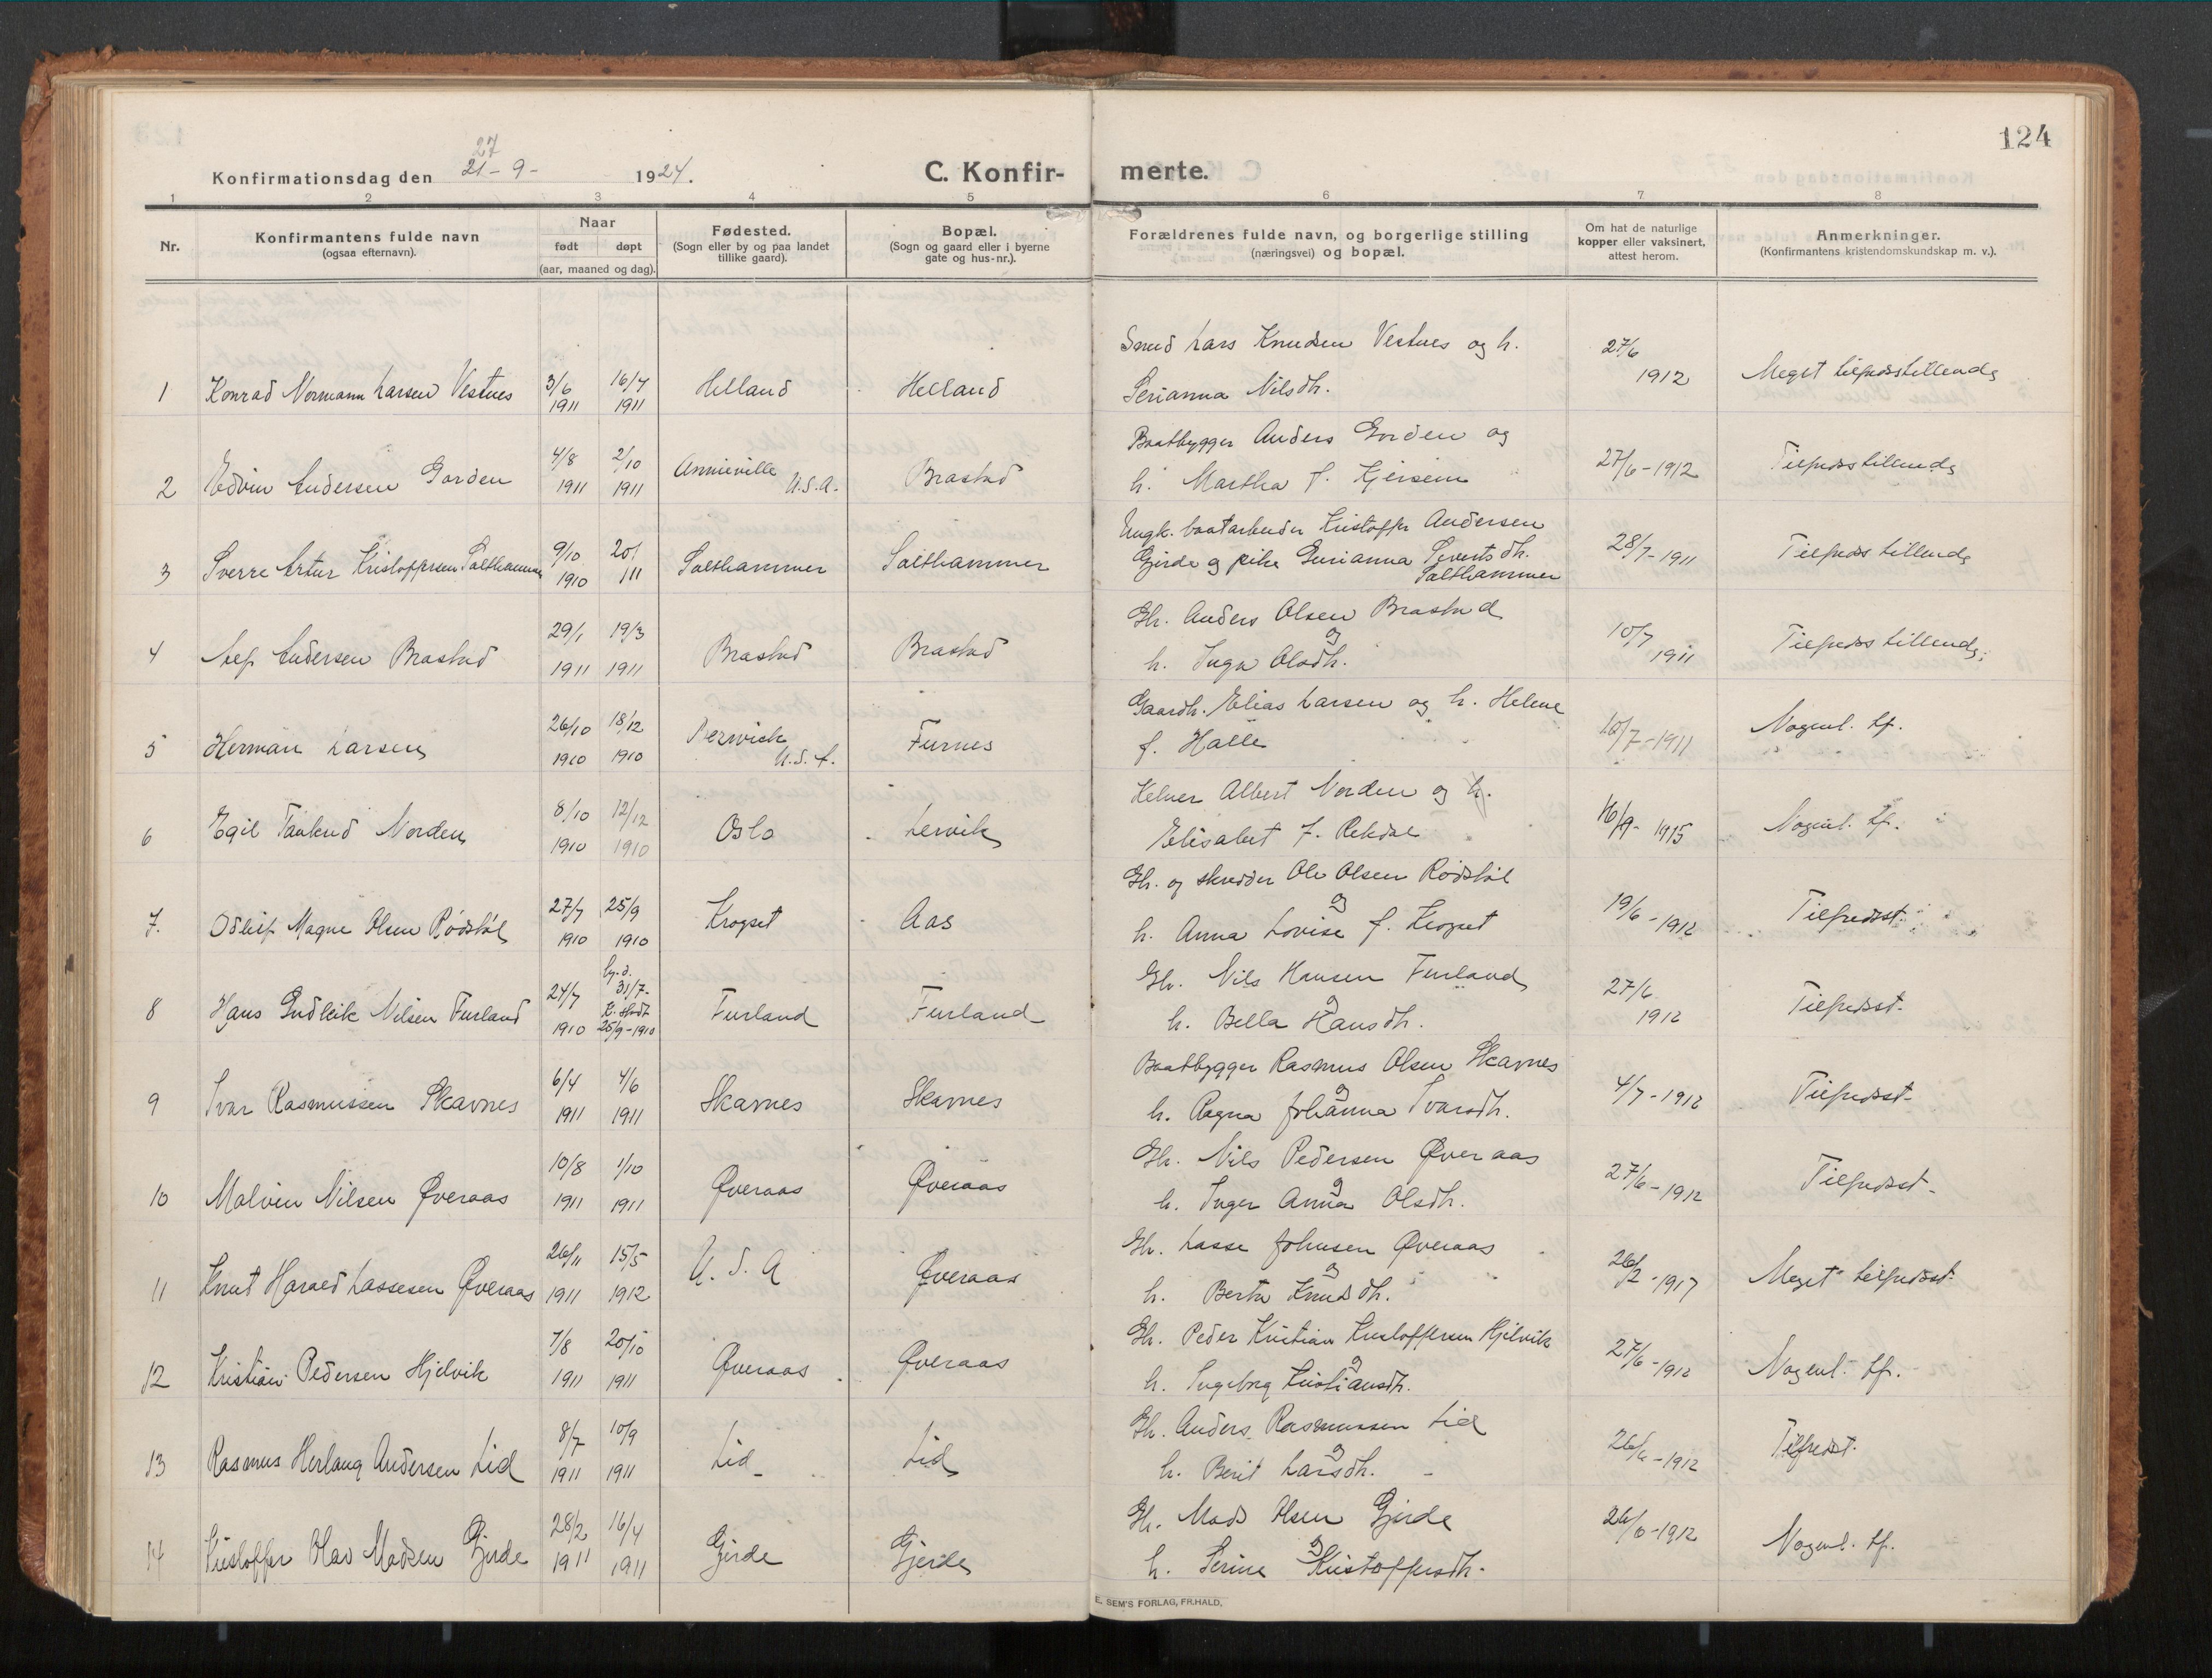 124
27
Konfirmationsdag den 21-9- 1924.
C. Konfir- merte.
1 2 3 4 5 6 7 8
Nr.
Konfirmantens fulde navn
(ogsaa efternavn).
Naar
født døpt
(aar, maaned og dag).
Fødested.
(Sogn eller by og paa landet
tillike gaard).
Bopæl.
(Sogn og gaard eller i byerne
gate og hus-nr.).
Forældrenes fulde navn, og borgerlige stilling
(næringsvei) og bopæl.
Om hat de naturlige
kopper eller vaksinert,
attest herom.
Anmerkninger.
(Konfirmantens kristendomskundskap m. v.).
Smed Lars Knudsen Vestnes og h. 27/6
1 Konrad Normann Larsen Vestnes 3/6 1911 16/7 1911 Helland Helland Serianna Nilsdh. 1912 Meget tilfredsstillende
Baatbygger Anders Gorden og
2 Edvin Andersen Gorden 4/8 1911 2/10 1911 Annieville U.S.A. Brastad h. Martha f. Kjersem 27/6-1912 Tilfredsstillende
Ungk. baatarbeider Kristoffer Andersen
3 Sverre Artur Kristoffersen Salthammer 9/10 1910 20/1 11 Salthammer Salthammer Gjerde og pike Gurianna Sivertsdh. Salthammer 28/7-1911 Tilfredsstillende
Gbr. Anders Olsen Brastad
og
4 Alf Andersen Brastad 29/1 1911 19/3 1911 Brastad Brastad h. Inga Olsdh. 10/7 1911 Tilfredsstillende
Gaardb. Elias Larsen og h. Helene
5 Herman Larsen 26/10 1910 18/12 1910 U.S.A. Furnes f. Halle 10/7-1911 Nogenl. tf.
Kelner Albert Norden og h.
6 Egil Norden 8/10 1910 12/12 1910 Oslo Lervik Elisabet f. Rekdal 16/9-1915 Nogenl. tf.
Gbr. og skredder Ole Olsen Rødstøl
og
7. Odleif Magne Olsen Rødstøl 27/7 1910 25/9 1910 Krogset Aas h. Anna Lovise f. Krogset 19/6-1912 Tilfredsst.
Gbr. Nils Hansen Furland
og
8 Hans Gudleik Nilsen Furland 24/7 1910 hj.d. 31/7- K. stedt 25/9-1910 Furland Furland h. Bella Hansdh. 27/6 1912 Tilfredsst.
Baatbygger Rasmus Olsen Skavnes
og
9 Ivar Rasmussen Skavnes 6/4 1911 4/6 1911 Skavnes Skavnes h. Ragna Johanna Ivarsdh. 4/7-1912 Tilfredsst.
Gbr. Nils Pedersen Øveraas
og
10 Malvin Nilsen Øveraas 10/8 1911 1/10 1911 Øveraas Øveraas h. Inger Anna Olsdh. 27/6-1912 Tilfredsst.
Gbr. Lasse Johnsen Øveraas
og
11 Knut Harald Lassesen Øveraas 26/11 1911 15/5 1912 U.S.A Øveraas h. Berta Knudsdh. 26/2-1917 Meget tilfredsst.
Gbr. Peder Kristian Kristoffersen Hjelvik
og
12 Kristian Pedersen Hjelvik 7/8 1911 20/10 1911 Øveraas Øveraas h. Ingeborg Kristiansdh. 27/6-1912 Nogenl. tf.
Gbr. Anders Rasmussen Lid
og
13 Rasmus Herlaug Andersen Lid 8/7 1911 10/9 1911 Lid Lid h. Berit Larsdh. 26/6-1912 Tilfredsst.
Gbr. Mads Olsen Gjerde
og
14 Kristoffer Olav Madsen Gjerde 28/2 1911 16/4 1911 Gjerde Gjerde h. Serine Kristoffersdh. 26/6-1912 Nogenl. tf.
E. SEM'S FORLAG, FR.HALD.